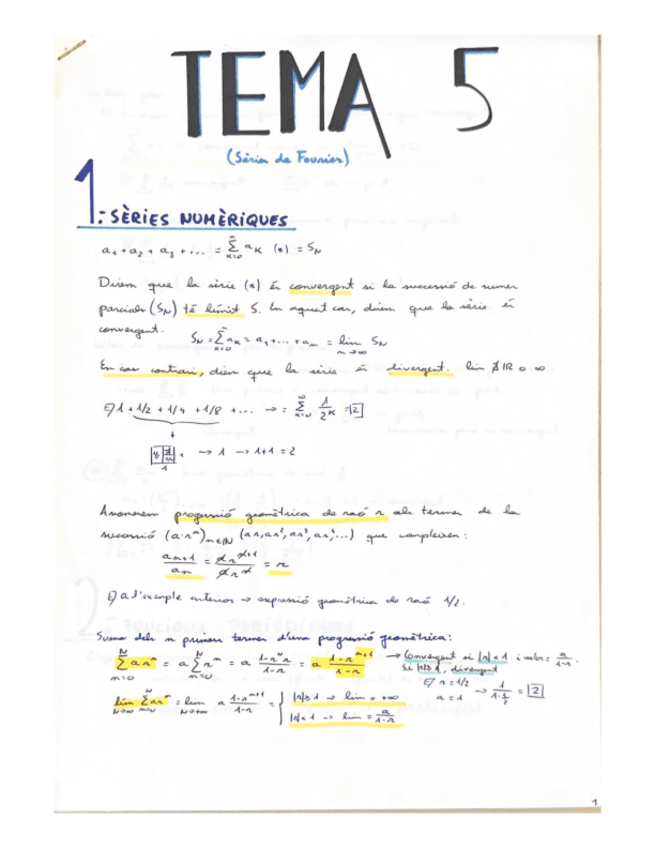 TEMA 5
(Sèries de Fourier)
1.- SÈRIES NUMÈRIQUES
a₁ + a₂ + a₃ + ... = ∑_{k=0}^{∞} a_k (*) = S_N
Diem que la sèrie (*) és convergent si la successió de sumes
parcials (S_N) té límit S. En aquest cas, diem que la sèrie és
convergent.
S_N = ∑_{k=0}^{n} a_k = a₁ + ... + a_n = lim_{n→∞} S_N
En cas contrari, diem que la sèrie és divergent. lim ∄ IR o ∞
E/ 1 + 1/2 + 1/4 + 1/8 + ... → = ∑_{k=0}^{∞} 1/2^k = 2
→ 1 → 1+1 = 2
Anomenem progressió geomètrica de raó r als termes de la
successió (a·rⁿ)_{n∈IN} (ar, ar², ar³, ar⁴, ...) que compleixen:
a_{n+1}/a_n = a r^{n+1}/a rⁿ = r
E/ a l'exemple anterior → expressió geomètrica de raó 1/2.
Suma dels n primers termes d'una progressió geomètrica:
∑_{n=0}^{N} arⁿ = a ∑_{n=0}^{N} rⁿ = a (1-rᴺr)/(1-r) = a (1-r^{n+1})/(1-r) → Convergent si |r|<1 i valor = a/(1-r).
Si |r|≥1, divergent
E/ r = 1/2
a = 1 → 1/(1-1/2) = 2
lim_{N→∞} ∑_{n=0}^{N} arⁿ = lim_{N→+∞} a (1-r^{n+1})/(1-r) = { |r|≥1 → lim = +∞
|r|<1 → lim = a/(1-r)
1